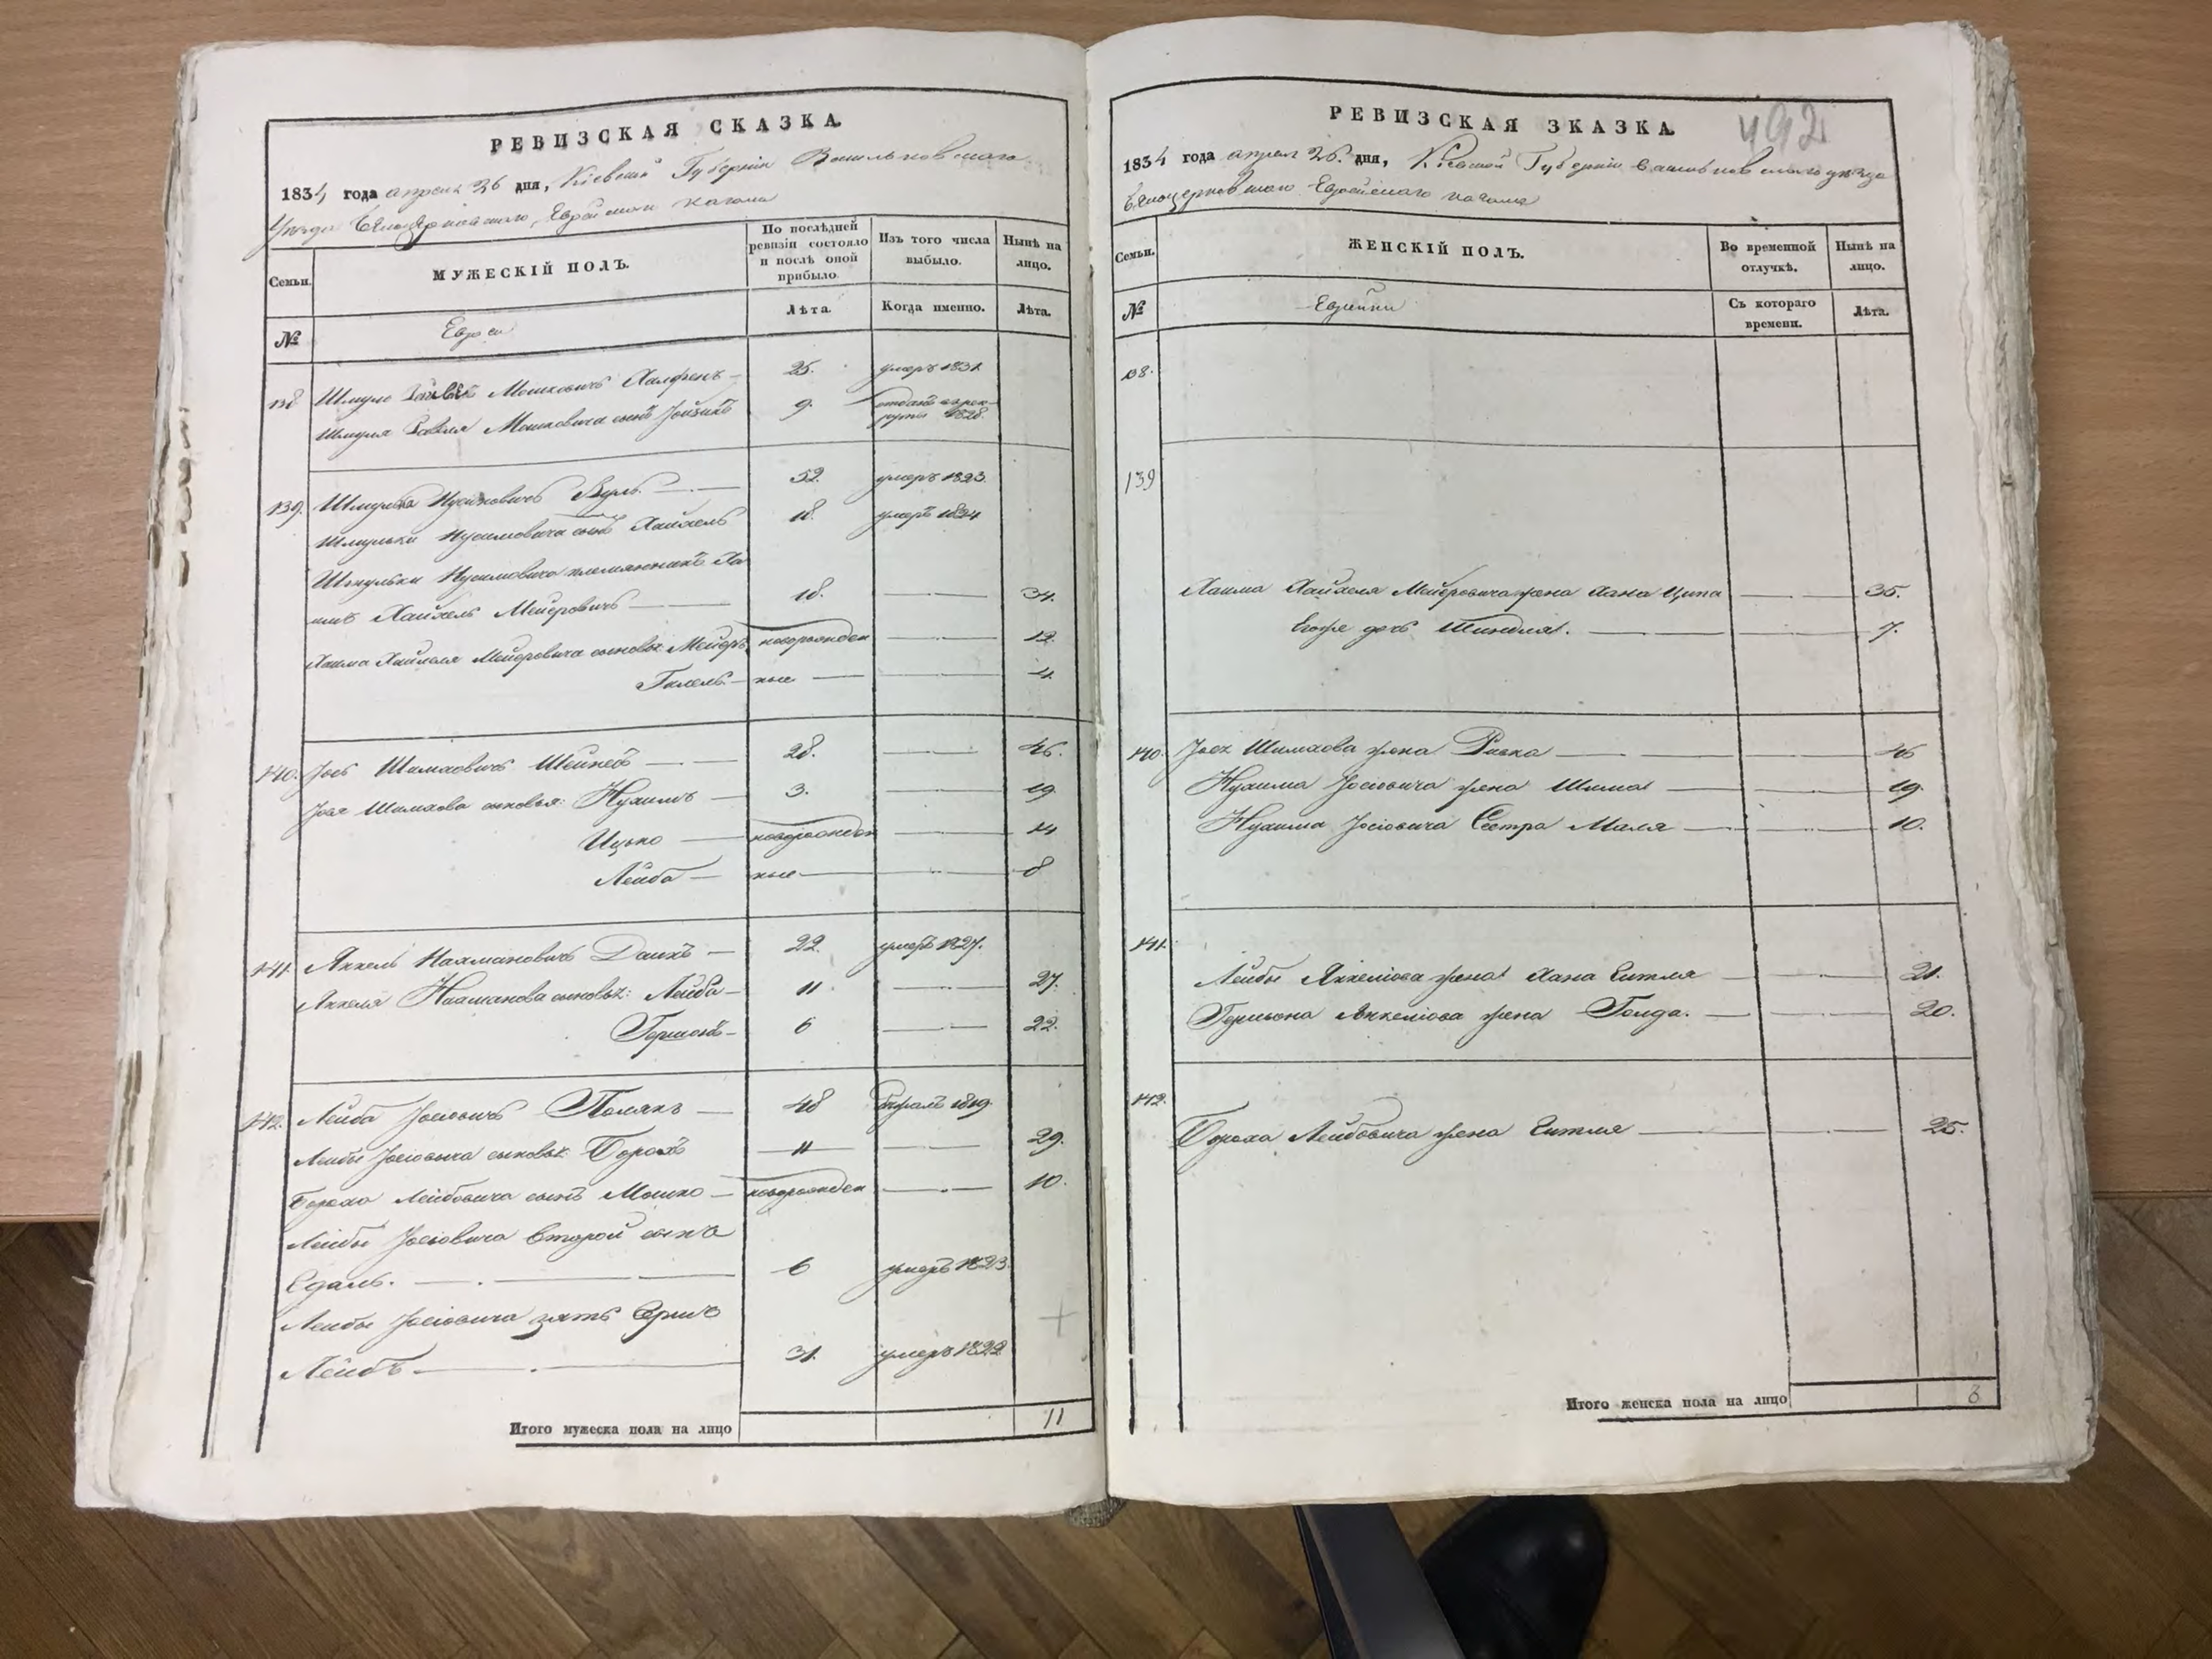 РЕВИЗСКАЯ СКАЗКА.
1834 года апреля 26 дня, Кіевской Губерніи Васильковскаго
Уезда Белоцерковскаго, Еврейскаго кагала
Семьи.
МУЖЕСКІЙ ПОЛЪ.
По послѣдней ревизіи состояло и послѣ оной прибыло.
Изъ того числа выбыло.
Нынѣ на лицо.
№
Евреи
Лѣта.
Когда именно.
Лѣта.
138 Шмуль Мошковичъ Халфенъ — 25. умеръ 1831.
Шмуля Мошковича сынъ 9. отданъ в рекруты 1828.
139. Шмулька Нусимовичъ 52. умеръ 1823.
Шмульки Нусимовича сынъ Хайкель 18. умеръ 1824
Шмульки Нусимовича племянникъ Ха
имъ Хайкель Мейеровичъ — 18. — 34.
Хаима Хайкеля Мейеровича сыновья: Мейеръ новорожден — 12.
Гилель — ные — 4.
140. Іось Шимховичъ — 28. — 46.
Іося Шимхова сыновья: Нухимъ — 3. — 19
Ицько — новорожден — 14
Лейба — ные — 8
141. Янкель Нахмановичъ — 22. умеръ 1827.
Янкеля Нахманова сыновья: Лейба — 11 — 27.
Гершонъ — 6 — 22.
142. Лейба Іосіовичъ Полякъ — 48 1819.
Лейбы Іосіовича сыновья: Борохъ 11 — 29.
Бороха Лейбовича сынъ Мошко — новорожден — 10.
Лейбы Іосіовича Второй сынъ
— 6 умеръ 1823.
Лейбы Іосіовича зять
Лейбъ — 31. умеръ 1822
Итого мужеска пола на лицо 11
РЕВИЗСКАЯ ЗКАЗКА.
492
1834 года апреля 26. дня, Кіевской Губерніи Васильковскаго уезда
Белоцерковскаго Еврейскаго кагала
Семьи.
ЖЕНСКІЙ ПОЛЪ.
Во временной отлучкѣ.
Нынѣ на лицо.
№
Еврейки
Съ котораго времени.
Лѣта.
138.
139
Хаима Хайкеля Мейеровича жена Хана Ципа — 35.
Егоже дочь Шиндля. — 7.
140. Іося Шимхова жена Ривка — 46
Нухима Іосіовича жена Шима — 19.
Нухима Іосіовича Сестра Маля — 10.
141.
Лейбы Янкеліова жена Хана Ейтля — 21.
Гершона Янкеліова жена Голда. — 20.
142.
Бороха Лейбовича жена Ейтля — 25.
Итого женска пола на лицо 8